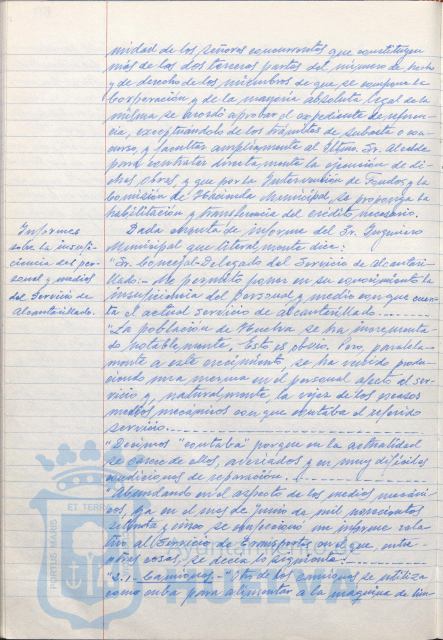 nidad de los señores concurrentes que constituyen
más de las dos terceras partes del número de hecho
y de derecho de los miembros de que se compone la
Corporación y de la mayoría absoluta legal de la
misma se acordó aprobar el expediente de referen-
cia, exceptuándolo de los trámites de subasta o con-
curso, y facultar ampliamente al Iltmo. Sr. Alcalde
para contratar directamente la ejecución de di-
chas obras, y que por la Intervención de Fondos y la
Comisión de Hacienda Municipal, se proponga la
habilitación y transferencia del crédito necesario.
Informes
sobre la insufi-
ciencia del per-
sonal y medios
del Servicio de
Alcantarillado.
Dada cuenta de informe del Sr. Ingeniero
Municipal que literalmente dice:
"Sr. Concejal-Delegado del Servicio de Alcantari-
llado:- Me permito poner en su conocimiento la
insuficiencia del personal y medio con que cuen-
ta el actual servicio de alcantarillado.
"La población de Huelva se ha incrementa-
do notablemente, Esto es obvio. Pero, paralela-
mente a este crecimiento, se ha venido produ-
ciendo una merma en el personal afecto al ser-
vicio y, naturalmente, la vejez de los escasos
medios mecánicos con que contaba el referido
servicio.
"Decimos "contaba" porque en la actualidad
se carece de ellos, averiados y en muy difíciles
condiciones de reparación.
"Abundando en el aspecto de los medios mecáni-
cos, ya en el mes de junio de mil novecientos
setenta y cinco se confeccionó un informe rela-
tivo al Servicio de Transportes, en el que, entre
otras cosas, se decía lo siguiente:
"2.1- Camiones.- Otro de los camiones se utiliza
como cuba para alimentar a la máquina de lim-
PORTUS MARIS ET TERRAE
Ayuntamiento
HUELVA